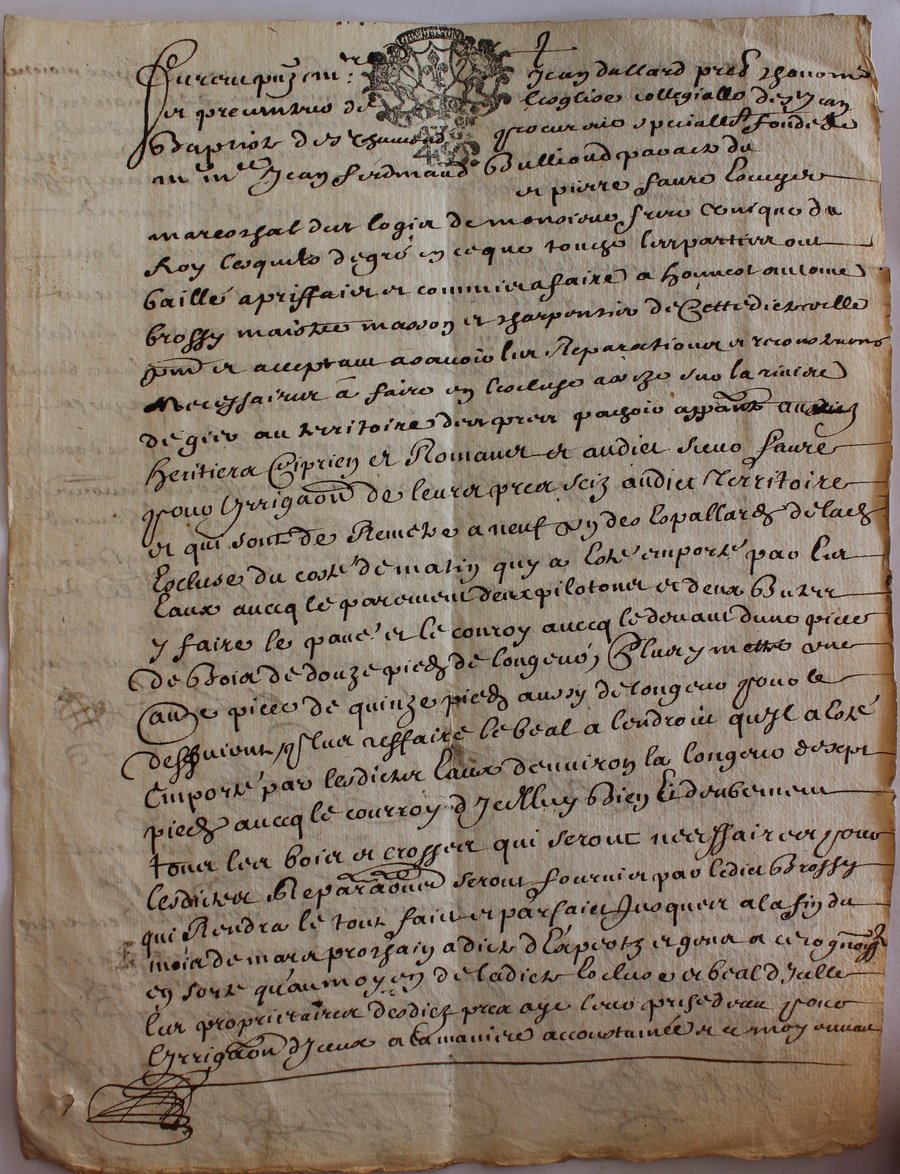 Furent pntz mre Jean dallard prebtre chanoine
et precenteur de l'esglise collegialle de st Jean
Baptiste de st chamond procureur speciallemt fondé de
Mre Jean ferdinand Bulliond
et pierre faure Escuyer
mareschal des logis de monsieur frere unique du
Roy lesquels de gré en ce que touche les parties ont
baillé a priffaict et commis a faire a honneste antoine
brossy maistre masson et charpentier de cette dicte ville
pnt et acceptant asavoir les Reparations et
necessaires a faire en l'escluse assize sur la riviere
de gier au territoire des prez appart ausdictz
heritiers Ciprien et Romanet et audict sieur faure
pour lyrrigaon de leurs prez seiz audict Territoire
et qui sont de Remettre a neuf un des espallardz de lade
Escluse du costé de matin quy a esté emporté par les
Eaux avecq le parement deux pilotons et deux
y faire le pavé et le conroy avecq le devant d'une piece
de bois de douze piedz de longeur, Plus y mettre une
autre piece de quinze piedz aussy de longeur pour le
Plus reffaire le beal a l'endroit qu'il a esté
emporté par lesdictes Eaux d'environ la longeur de sept
piedz avecq le courroy d'Icelluy bien Et deubement
tous les bois et crosses qui seront necessaires pour
lesdictes Reparaons seront fournis par ledict Brossy
qui Rendra le tout faict et parfaict Jusques a la fin du
mois de mars prochain a dicte d'Expertz et gens a ce cognoiss
en sorte qu'au moyen de ladicte Escluse et beal d'Icelle
les proprietaires desdictz prez aye leur prise d'eau pour
lyrrigaon d'Iceux a la maniere accoustumée et ce moyennant